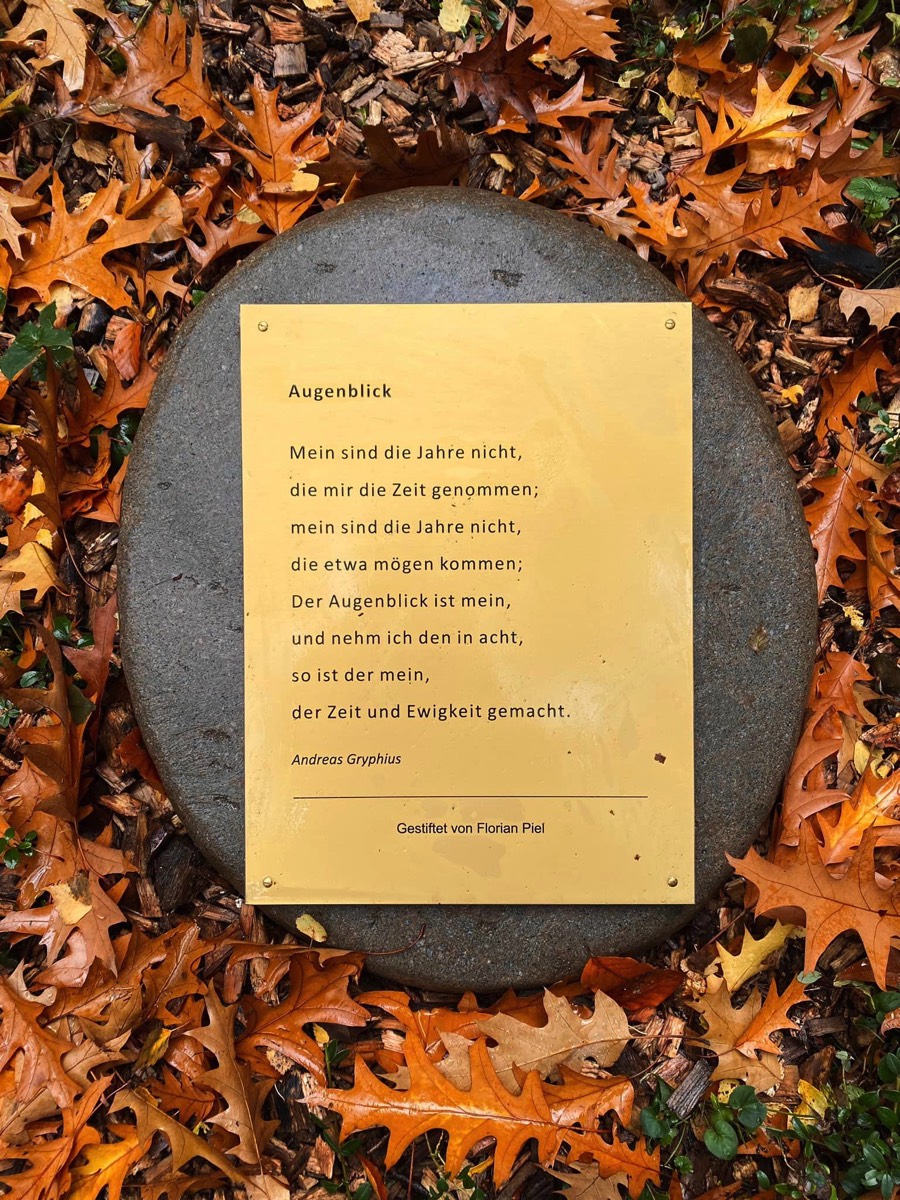 Augenblick
Mein sind die Jahre nicht,
die mir die Zeit genommen;
mein sind die Jahre nicht,
die etwa mögen kommen;
Der Augenblick ist mein,
und nehm ich den in acht,
so ist der mein,
der Zeit und Ewigkeit gemacht.
Andreas Gryphius
Gestiftet von Florian Piel